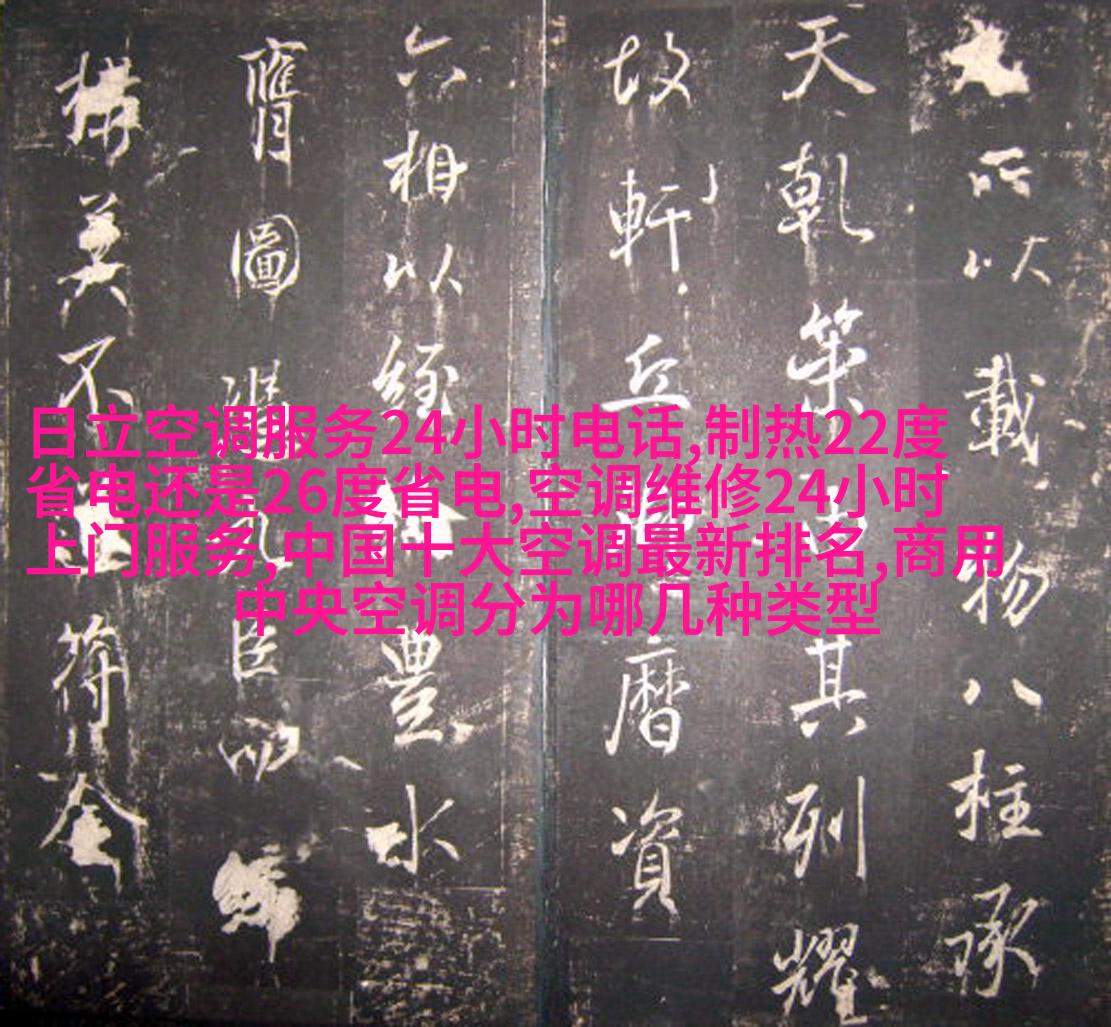 日立空调服务24小时电话,制热22度
省电还是26度省电,空调维修24小时
上门服务,中国十大空调最新排名,商用
中央空调分为哪几种类型
所以載物八柱承
天乾策其列耀
故軒丘曆資
六相以經豐水
膺圖臣
構美不符奎